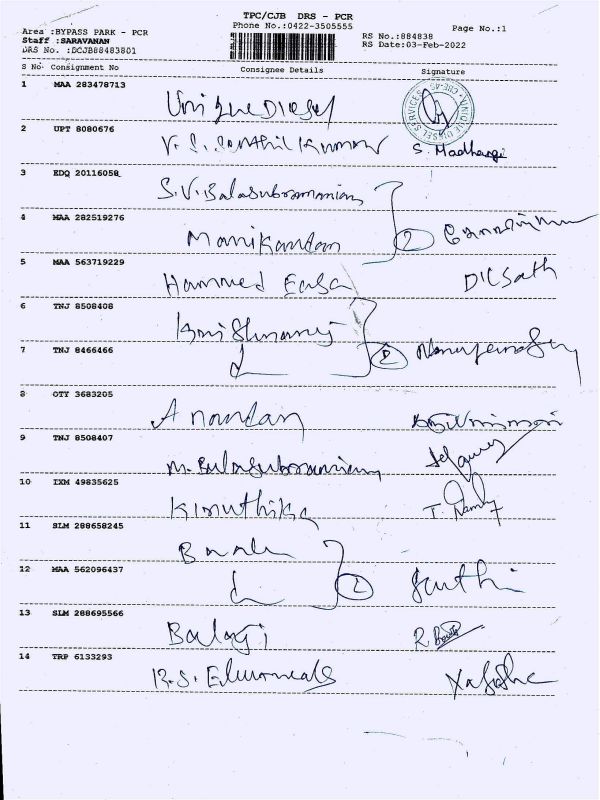 TPC/CJB DRS - PCR
Phone No.:0422-3505555
Page No.:1
Area :BYPASS PARK - PCR
Staff :SARAVANAN
DRS No. :DCJB88483801
RS No.:884838
RS Date:03-Feb-2022
S No Consignment No Consignee Details Signature
1 MAA 283478713 Unique Diesel
UNIQUE DIESEL SERVICES
2 UPT 8080676 V. S. Senthil Kumar S. Madhangi
3 EDQ 20116058 S.V. Balasubramaniam
4 MAA 282519276 Manikandan 2
5 MAA 563719229 Hammed Eabsa Dilsath
6 TNJ 8508408
7 TNJ 8466466 2
8 OTY 3683205 Anandan
9 TNJ 8508407 M. Balasubramaniam
10 IXM 49835625 Kiruthika
11 SLM 288658245
12 MAA 562096437 2
13 SLM 288695566 Balaji
14 TRP 6133293 R.S.